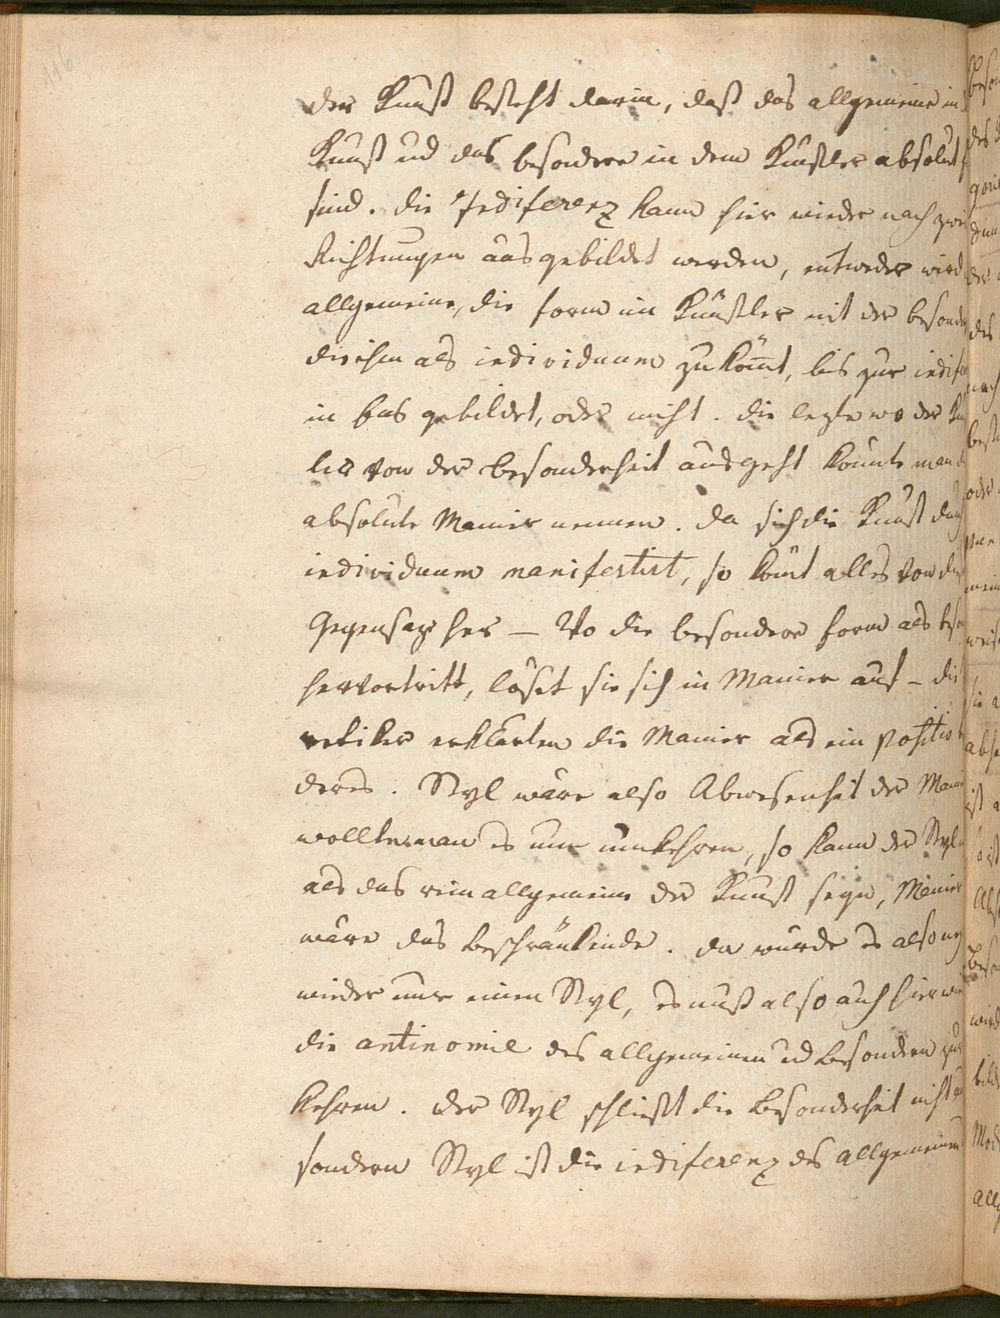 116
der Kunst besteht darin, daß das allgemeine in d
Kunst ud das besondere in dem Künstler absolut
sind. die Indiferenz kann hier wieder nach zwei
Richtungen ausgebildet werden, entweder wird
allgemeine, die form im Künstler mit der besonder
die ihm als individuum zukom̄t, bis zur indife
in bas gebildet, oder nicht. die lezte wo der Kü
ler von der besonderheit ausgeht könnte man d
absolute Manier nennen. da sich die Kunst durch
individuum manifestirt, so kom̄t alles von dem
Gegensaz her – Wo die besondere form als beso
hervortritt, löset sie sich in Manier auf – die
retiker erklärten die Manier als ein positiv
deres. Styl wäre also Abwesenheit der Manie
wollte man es nun umkehren, so kann der Styl
als das rein allgemeine der Kunst seyn, Manier
wäre das beschränkende. da wurde es also
wieder nur einen Styl, es muß also auch hier wie
die antinomie des allgemeinen ud besondren zur
kehren. der Styl schließt die besonderheit nicht au
sondern Styl ist die indiferenz des allgemeinen